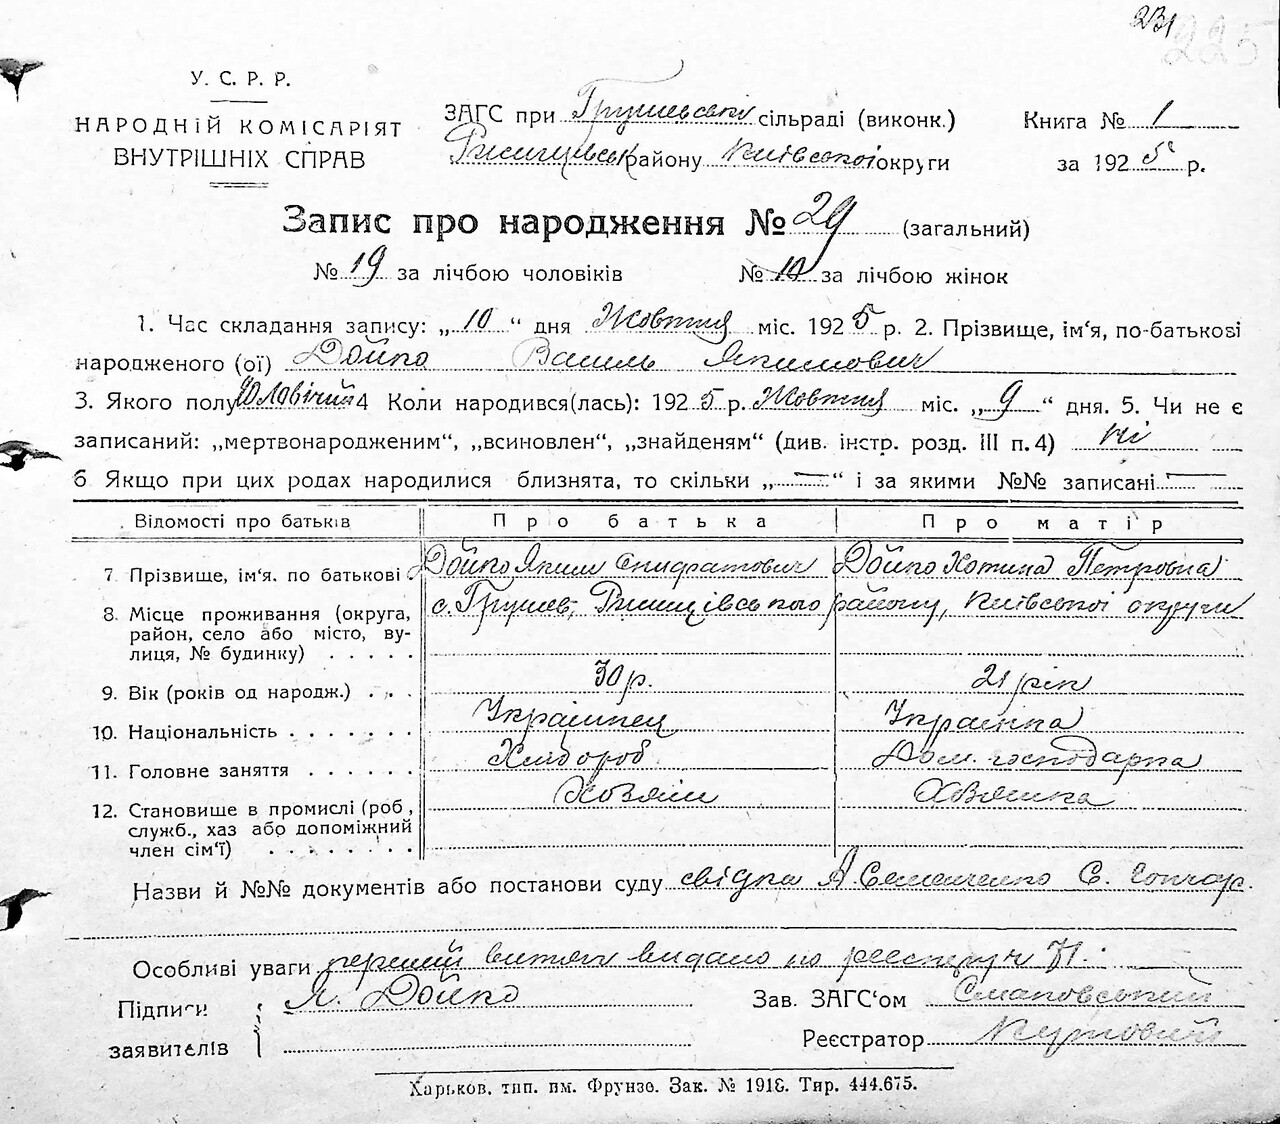 231
225
У. С. Р. Р.
НАРОДНІЙ КОМІСАРІЯТ
ВНУТРІШНІХ СПРАВ
ЗАГС при Грушевські сільраді (виконк.)
Ржищевськ району Київської округи
Книга № 1
за 1925 р.
Запис про народження № 29 (загальний)
№ 19 за лічбою чоловіків № 10 за лічбою жінок
1. Час складання запису: „10“ дня Жовтня міс. 1925 р. 2. Прізвище, ім‘я, по-батькові
народженого (ої) Дойко Василь Якимович
3. Якого полу Чоловічий 4 Коли народився(лась): 1925 р. Жовтня міс. „9“ дня. 5. Чи не є
записаний: „мертвонародженим“, „всиновлен“, „знайденям“ (див. інстр. розд. III п. 4) ні
6 Якщо при цих родах народилися близнята, то скільки „—“ і за якими №№ записані —
Відомості про батьків Про батька Про матір
7. Прізвище, ім‘я. по батькові Дойко Яким Дойко Петровна
8. Місце проживання (округа, с. Грушев, Ржищівського району, Київської округи
район, село або місто, ву-
лиця, № будинку) . . . . .
9. Вік (років од народж.) . . . 30 р. 21 рік
10. Національність . . . . . . . Українец Украінка
11. Головне заняття . . . . . . Хлібороб Дом. господарка
12. Становище в промислі (роб, Хозяін Хозяшка
служб., хаз або допоміжний
член сім‘ї) . . . . . . . .
Назви й №№ документів або постанови суду свідки А Семенченко С. Гончар.
Особливі уваги перший витяг видано по реестру 71.
Підписи
заявителів
Я. Дойко
Зав. ЗАГС‘ом
Реєстратор
Харьков, тип. им. Фрунзе. Зак. № 1918. Тир. 444.675.